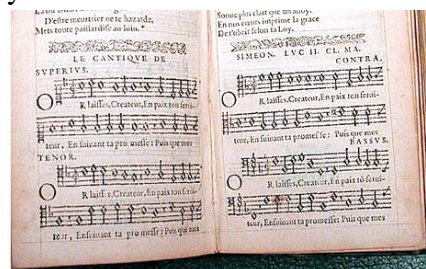 D'estre meurtrier ne te hazarde,
Mets toute paillardise au loin. *
LE CANTIQVE DE
SVPERIVS.
O
R laisses, Createur, En paix ton serui-
teur, En suiuant ta promesse: Puis que mes
TENOR.
O
R laisses, Createur, En paix ton serui-
teur, Ensuiuant ta promesse: Puis que mes
En nos cœurs imprime la grace
De t'obeir selon ta Loy.
SIMEON. LVC II. CL. MA.
CONTRA.
O
R laisses, Createur, En paix ton serui-
teur, En suiuant ta promesse: Puis que mes
BASSVS.
O
R laisses, Createur, En paix tõ serui-
teur, Ensuiuant ta promesse: Puis que mes